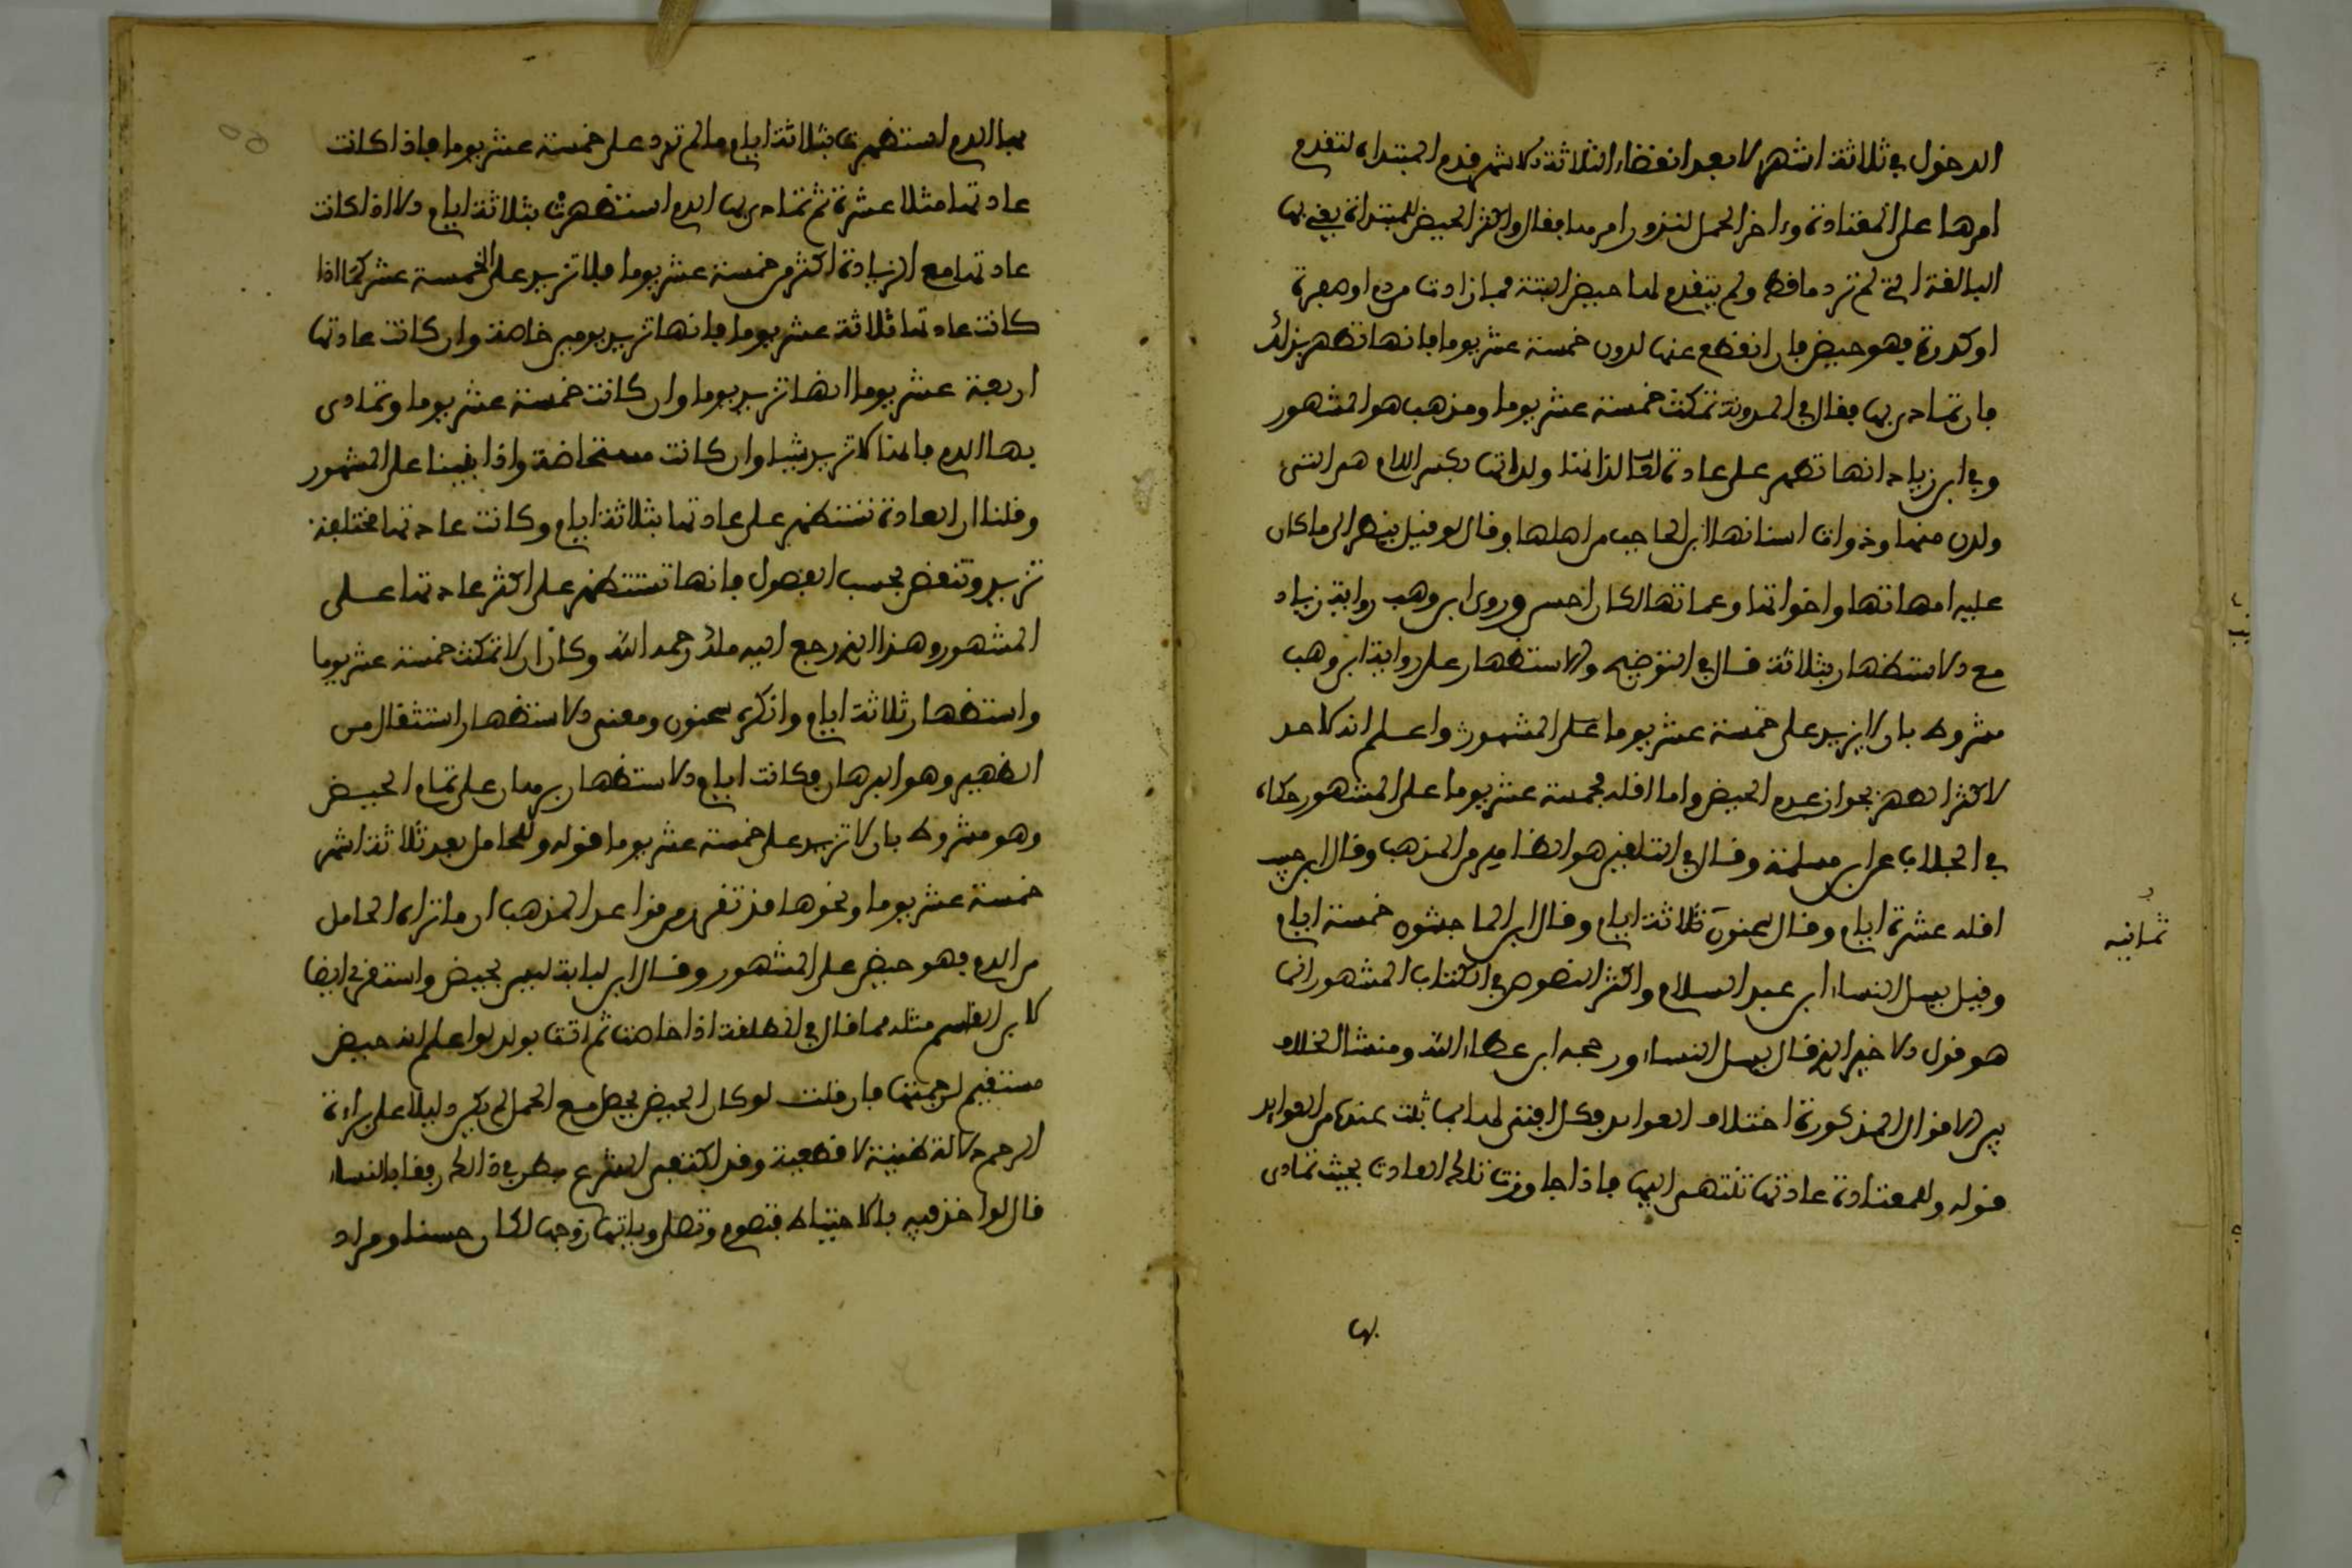 الدخول في ثلاثة اشهر لا بعد انقضاء الثلاثة الاشهر قدم المبتداه لتقدم
امرها على المعتادة واخر الحمل لنزور امرها فقال واكثر الحيض للمبتداة يعني بها
البالغة التي لم تر دما قط ولم يتقدم لها حيض البتة فما زادت من دم او صفرة
او كدرة فهو حيض فان انقطع عنها لدون خمسة عشر يوما فانها تطهر بذلك
فان تمادى بها فقال في المدونة تمكث خمسة عشر يوما ومذهب هو المشهور
وفي ابن زياد انها تطهر على عادة لداتها ولداتها بكسر اللام هم التي
ولدن معها وذوات اسنانها ابن الحاجب من اهلها وقال لو قيل ينظر الى ما كان
عليه امهاتها واخواتها وعماتها لكان احسن وروى ابن وهب رواية زياد
مع الاستظهار بثلاثة قال في التوضيح والاستظهار على رواية ابن وهب
مشروط بان لا يزيد على خمسة عشر يوما على المشهور واعلم انه لا حد
لاكثر الطهر بجواز عدم الحيض واما اقله فخمسة عشر يوما على المشهور حكاه
في الجلاب عن ابن مسلمة وقال في التلقين هو الظاهر من المذهب وقال ابن حبيب
اقله عشرة ايام وقال سحنون ثلاثة ايام وقال ابن الماجشون خمسة ايام
ثمانيه
وقيل يسل النساء ابن عبد السلام واكثر النصوص في الكتاب المشهور انها
هو قول الاخير الذي قال يسل النساء ورجحه ابن عطاء الله ومنشا الخلاف
بين الاقوال المذكورة اختلاف العوايد فكل افتى لها بما ثبت عنده من العوايد
قوله وللمعتادة عادتها تنتهي اليها فاذا جاوزت تلك العادت بحيث تمادى
بها
بها الدم استظهرت بثلاثة ايام ما لم تزد على خمسة عشر يوما فاذا كانت
عادتها مثلا عشرة ثم تمادى بها الدم استظهرت بثلاثة ايام الا اذا كانت
عادتها مع الزيادة اكثر من خمسة عشر يوما فلا تزيد على الخمسة عشر كما اذا
كانت عادتها ثلاثة عشر يوما فانها تزيد يومين خاصة وان كانت عادتها
اربعة عشر يوما انها تزيد يوما وان كانت خمسة عشر يوما وتمادى
بها الدم فانها لا تزيد شيا وان كانت مستحاضة واذا بنينا على المشهور
وقلنا ان العادة تستظهر على عادتها بثلاثة ايام وكانت عادتها مختلفة
تزيد وتنقص بحسب الفصول فانها تستظهر على اكثر عادتها على
المشهور وهذا الذي رجع اليه ملك رحمه الله وكان ان لا تمكث خمسة عشر يوما
واستظهار ثلاثة ايام وانكره سحنون ومعنى الاستظهار استثقال من
الظهير وهو البرهان فكانت ايام الاستظهار برهان على تمام الحيض
وهو مشروط بان لا تزيد على خمسة عشر يوما قوله وللحامل بعد ثلاثة اشهر
خمسة عشر يوما ونحوها قد تقرر من قواعد المذهب ان ما تراه الحامل
من الدم فهو حيض على المشهور وقال ابن لبابة ليس بحيض واستقرئ ايضا
لابن القاسم مثله مما قال في المطلقة اذا حاضت ثم اتت بولد لو اعلم انه حيض
مستقيم لرجمتها فان قلت لو كان الحيض يحصل مع الحمل لم يكن دليلا على براءة
الرحم دلالة ظنية لا قطعية وقد اكتفى الشرع بطن في ذلك رفقا بالنساء
قال لو اخذ فيه بالاحتياط فتصوم وتصلي وياتيها زوجها لكان حسنا ومراد